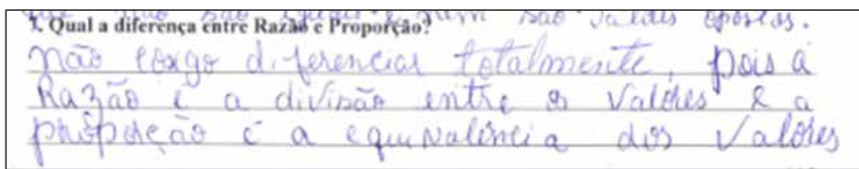 que não são iguais e nem são valores opostos.
7. Qual a diferença entre Razão e Proporção?
não consigo diferenciar totalmente, pois a
Razão é a divisão entre os valores e a
proporção é a equivalência dos valores